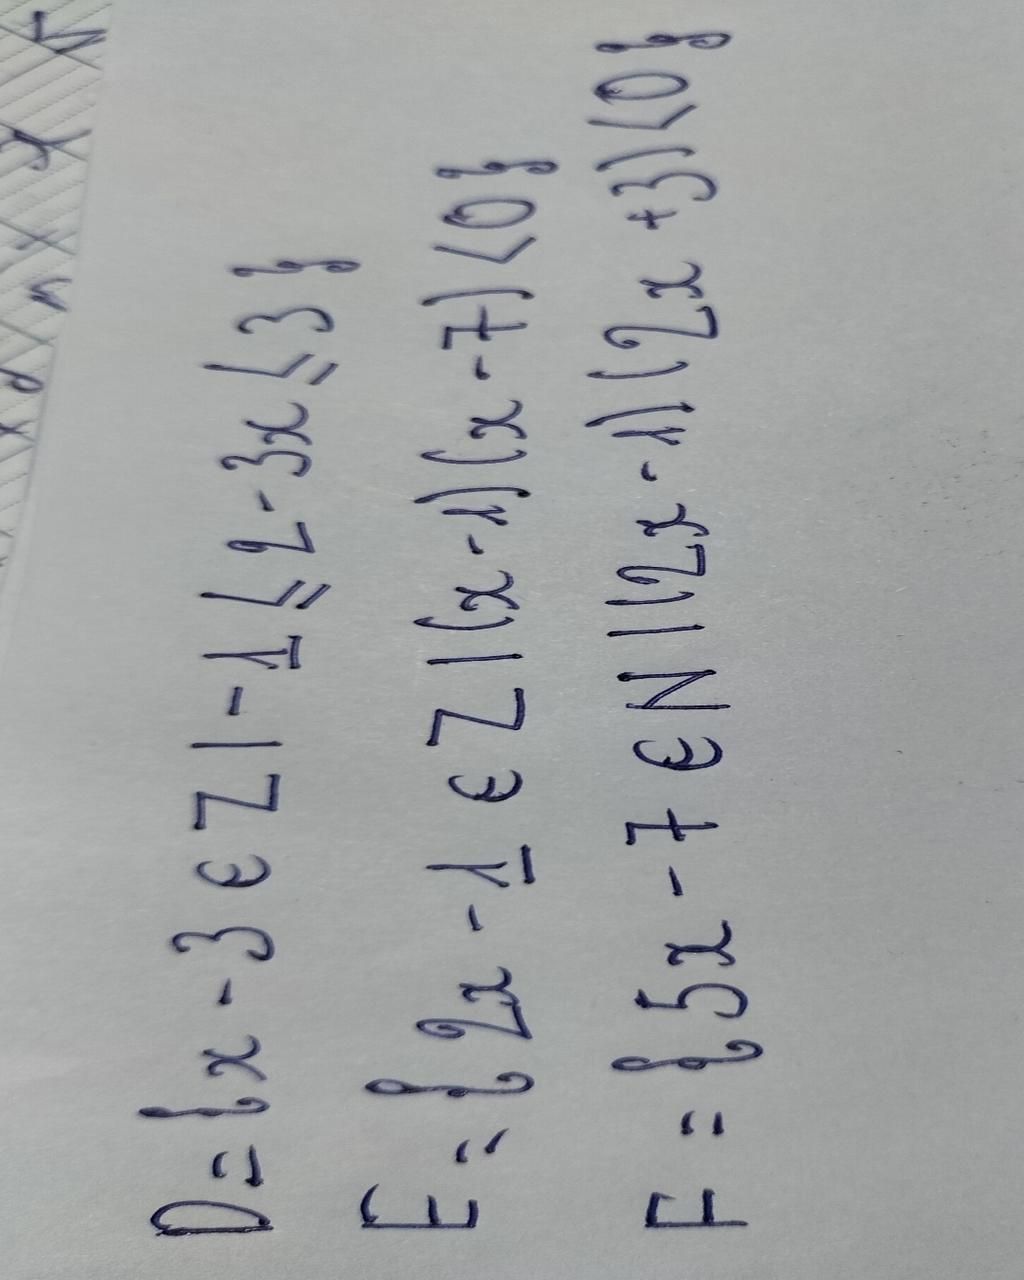 D={x-3∈Z|-1≤2-3x≤3}
E={2x-1∈Z|(x-1)(x-7)<0}
F={5x-7∈N|(2x-1)(2x+3)<0}